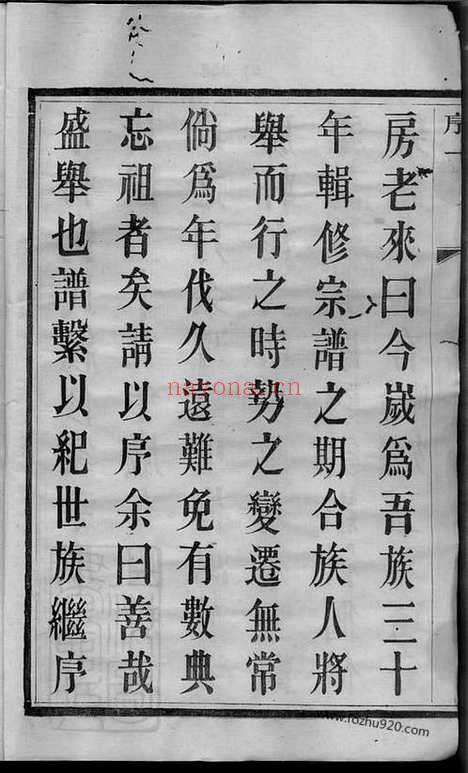 序一
房老來曰今歲爲吾族三十
年輯修宗譜之期合族人將
舉而行之時势之變遷無常
倘爲年伐久遠難免有數典
忘祖者矣請以序余曰善哉
盛舉也譜繫以紀世族繼序
nayona.cn
www.rozhu920.com